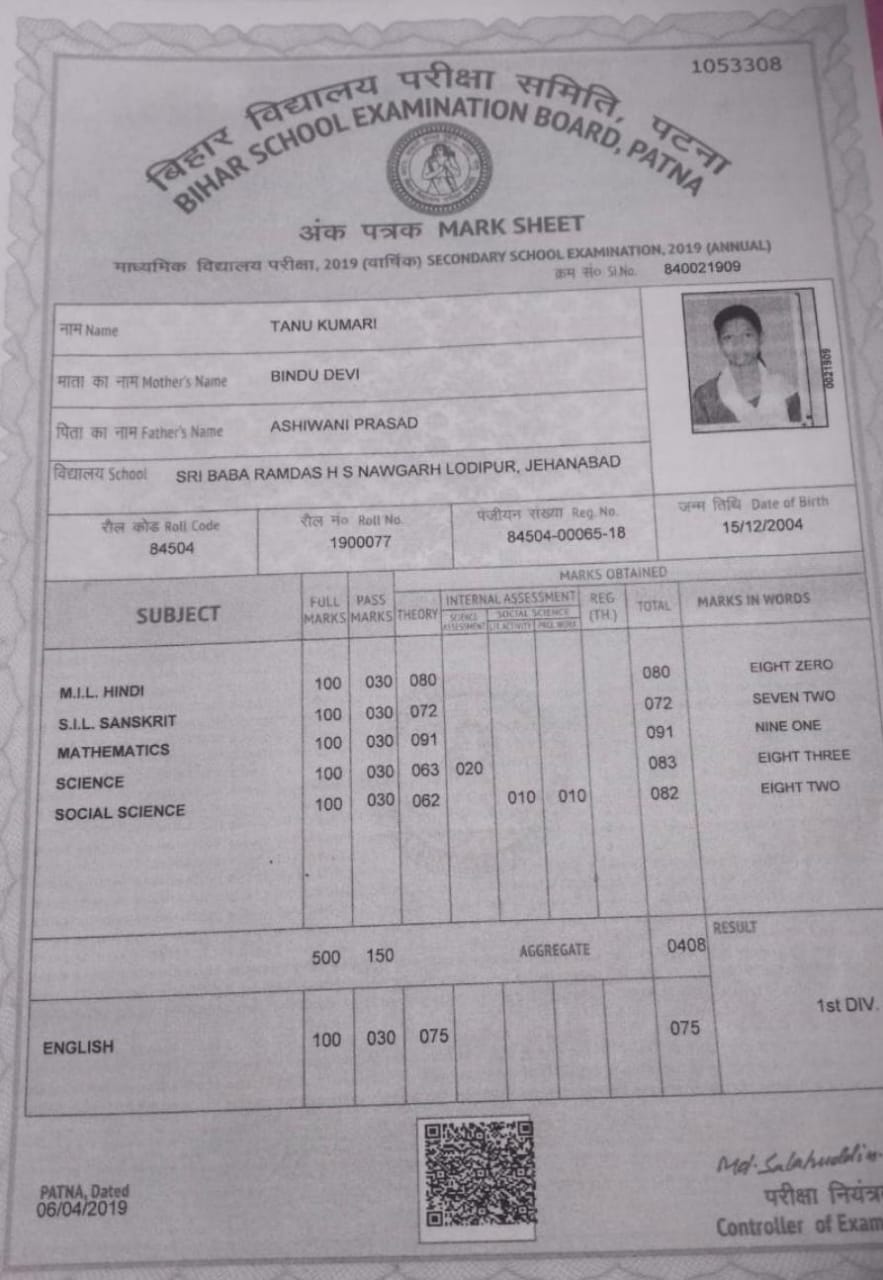 1053308
बिहार विद्यालय परीक्षा समिति, पटना
BIHAR SCHOOL EXAMINATION BOARD, PATNA
अंक पत्रक MARK SHEET
माध्यमिक विद्यालय परीक्षा, 2019 (वार्षिक) SECONDARY SCHOOL EXAMINATION, 2019 (ANNUAL)
क्रम सं० Sl.No. 840021909
नाम Name TANU KUMARI
माता का नाम Mother's Name BINDU DEVI
पिता का नाम Father's Name ASHIWANI PRASAD
विद्यालय School SRI BABA RAMDAS H S NAWGARH LODIPUR, JEHANABAD
0021909
रौल कोड Roll Code रौल नं० Roll No. पंजीयन संख्या Reg. No. जन्म तिथि Date of Birth
84504 1900077 84504-00065-18 15/12/2004
MARKS OBTAINED
SUBJECT FULL MARKS PASS MARKS THEORY INTERNAL ASSESSMENT REG (TH.) TOTAL MARKS IN WORDS
SCIENCE ASSESSMENT SOCIAL SCIENCE LIT. ACTIVITY PROJ. WORK
M.I.L. HINDI 100 030 080 080 EIGHT ZERO
S.I.L. SANSKRIT 100 030 072 072 SEVEN TWO
MATHEMATICS 100 030 091 091 NINE ONE
SCIENCE 100 030 063 020 083 EIGHT THREE
SOCIAL SCIENCE 100 030 062 010 010 082 EIGHT TWO
500 150 AGGREGATE 0408 RESULT
1st DIV.
ENGLISH 100 030 075 075
Md. Salahuddin
PATNA, Dated
06/04/2019
परीक्षा नियंत्र
Controller of Exam